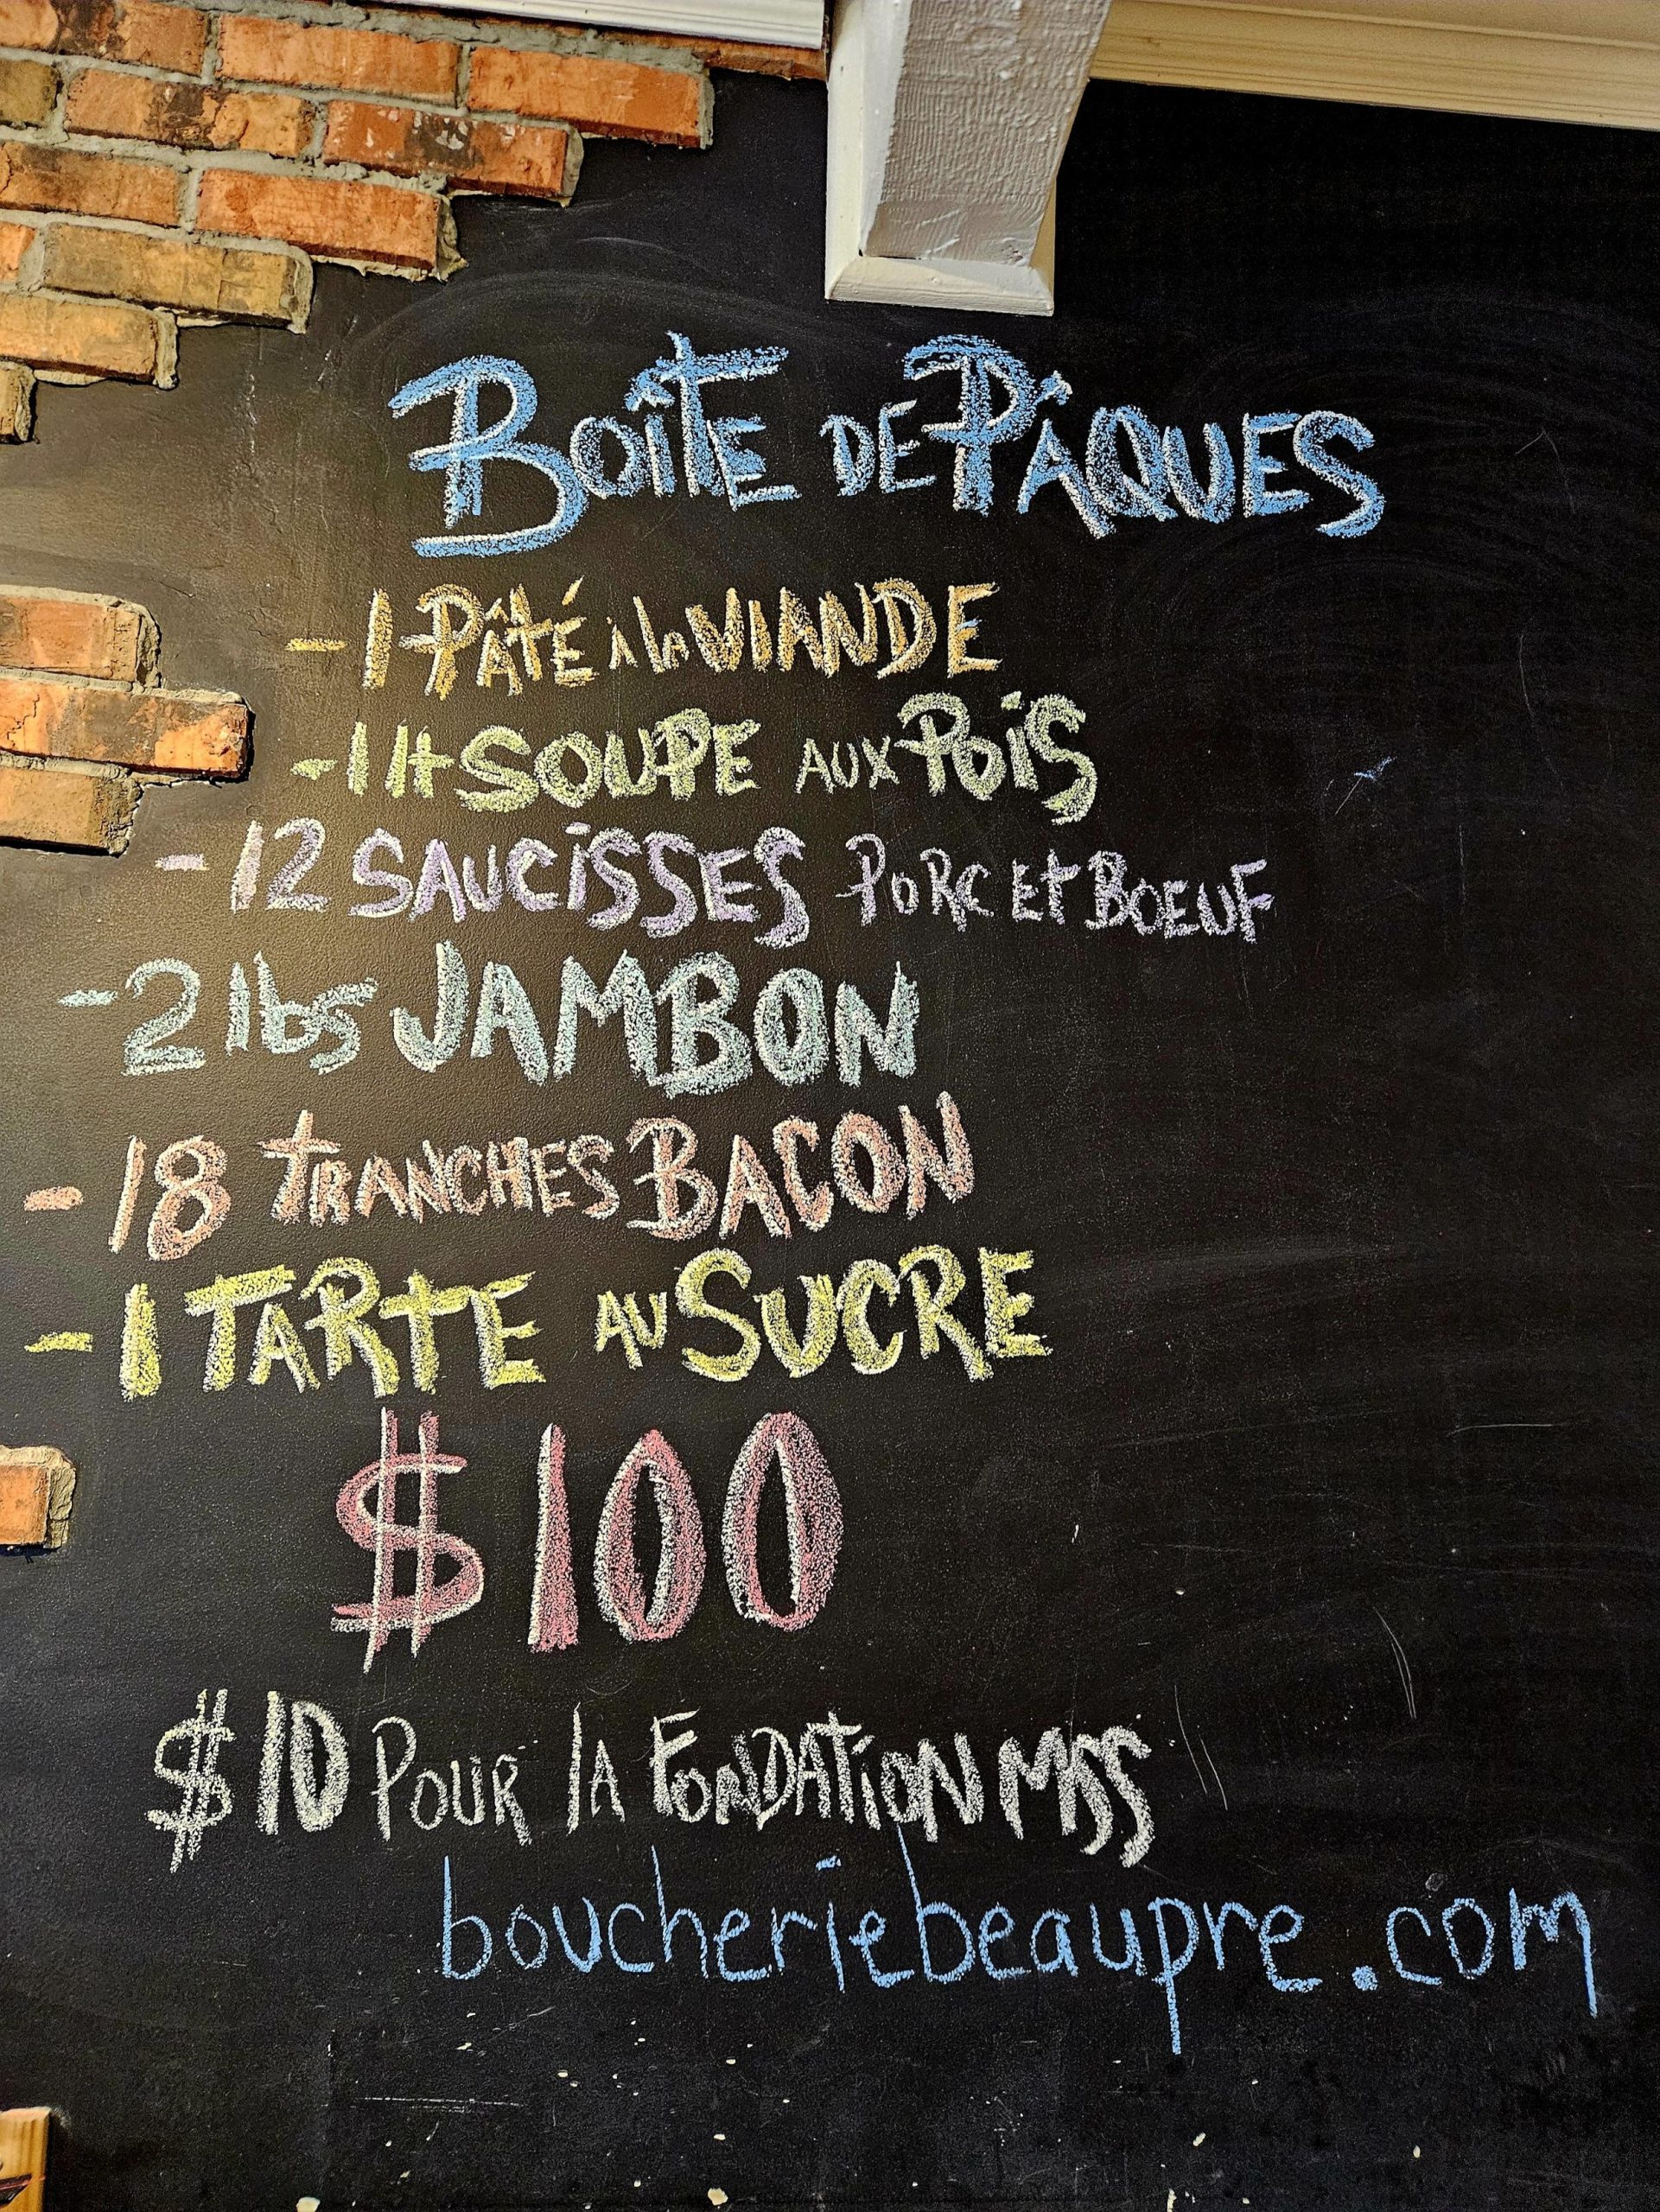 BOÎTE DE PÂQUES
-1 PÂTÉ à la VIANDE
-1 lt SOUPE AUX POiS
-12 SAUCiSSES PORC ET BOEUF
-2 lbs JAMBON
-18 TRANCHES BACON
-1 TARTE AU SUCRE
$100
$10 POUR lA FONDATiON MSS
boucheriebeaupre.com